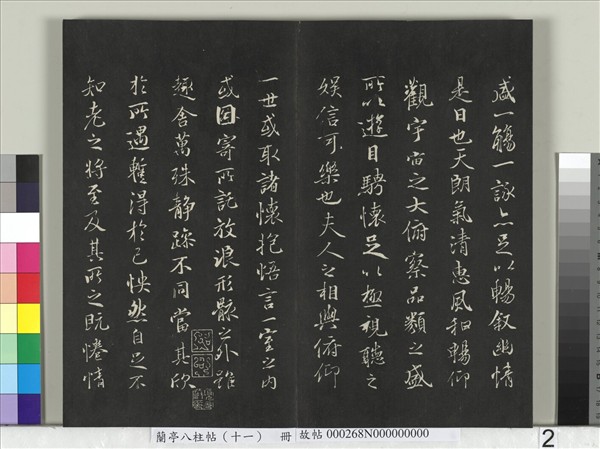 盛一觴一詠亦足以暢叙幽情
是日也天朗氣清惠風和暢仰
觀宇宙之大俯察品類之盛
所以遊目騁懷足以極視聽之
娛信可樂也夫人之相與俯仰
一世或取諸懷抱悟言一室之內
或因寄所託放浪形骸之外雖
趣舍萬殊靜躁不同當其欣
於所遇暫得於己怏然自足不
知老之將至及其所之既惓情
蘭亭八柱帖(十一) 冊 故帖 000268N000000000
2